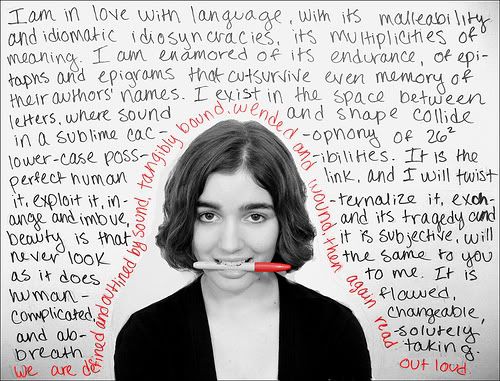 I am in love with language, with its malleability
and idiomatic idiosyncracies, its multiplicities of
meaning. I am enamored of its endurance, of epi-
taphs and epigrams that outsurvive even memory of
their authors' names. I exist in the space between
letters, where sound and shape collide
in a sublime cac- -ophony of 26²
lower-case poss- -ibilities. It is the
perfect human link, and I will twist
it, exploit it, in- -ternalize it, exch-
ange and imbue, and its tragedy and
beauty is that it is subjective, will
never look the same to you
as it does to me. It is
human- flawed,
complicated, changeable,
and ab- -solutely
breath taking.
we are defined and outlined by sound, tangibly bound. wended and wound then again read out loud.